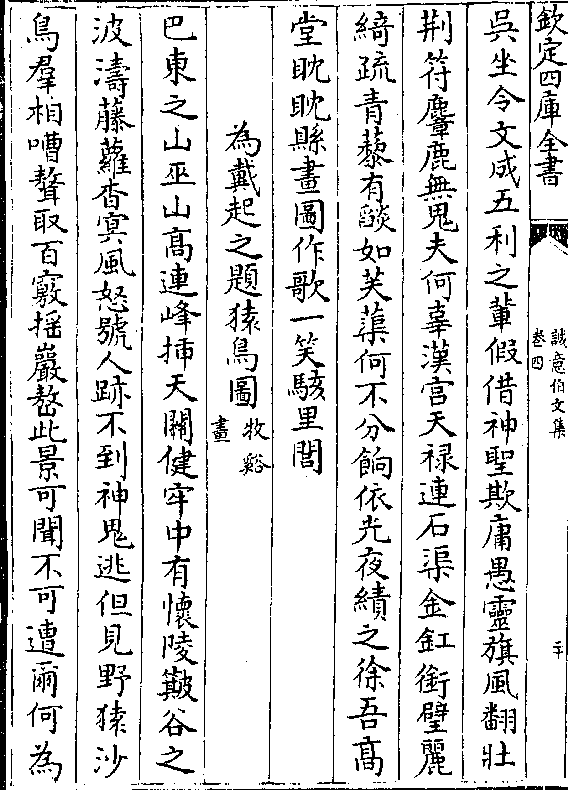 欽定四庫全書
誠意伯文集
卷四
二十
吳坐令文成五利之輩假借神聖欺庸愚靈旗風翻壯
荆符麞鹿無鬼夫何辜漢宫天禄連石渠金釭銜璧麗
綺疏青藜有燄如芙蕖何不分餉依光夜績之徐吾髙
堂眈眈縣畫圖作歌一笑駭里閭
為戴起之題猿鳥圖牧谿畫
巴東之山巫山髙連峰揷天關健牢中有懷陵巀谷之
波濤藤蘿杳冥風怒號人跡不到神鬼逃但見野猿沙
鳥羣相嘈聱取百竅揺巖嶅此景可聞不可遭爾何為